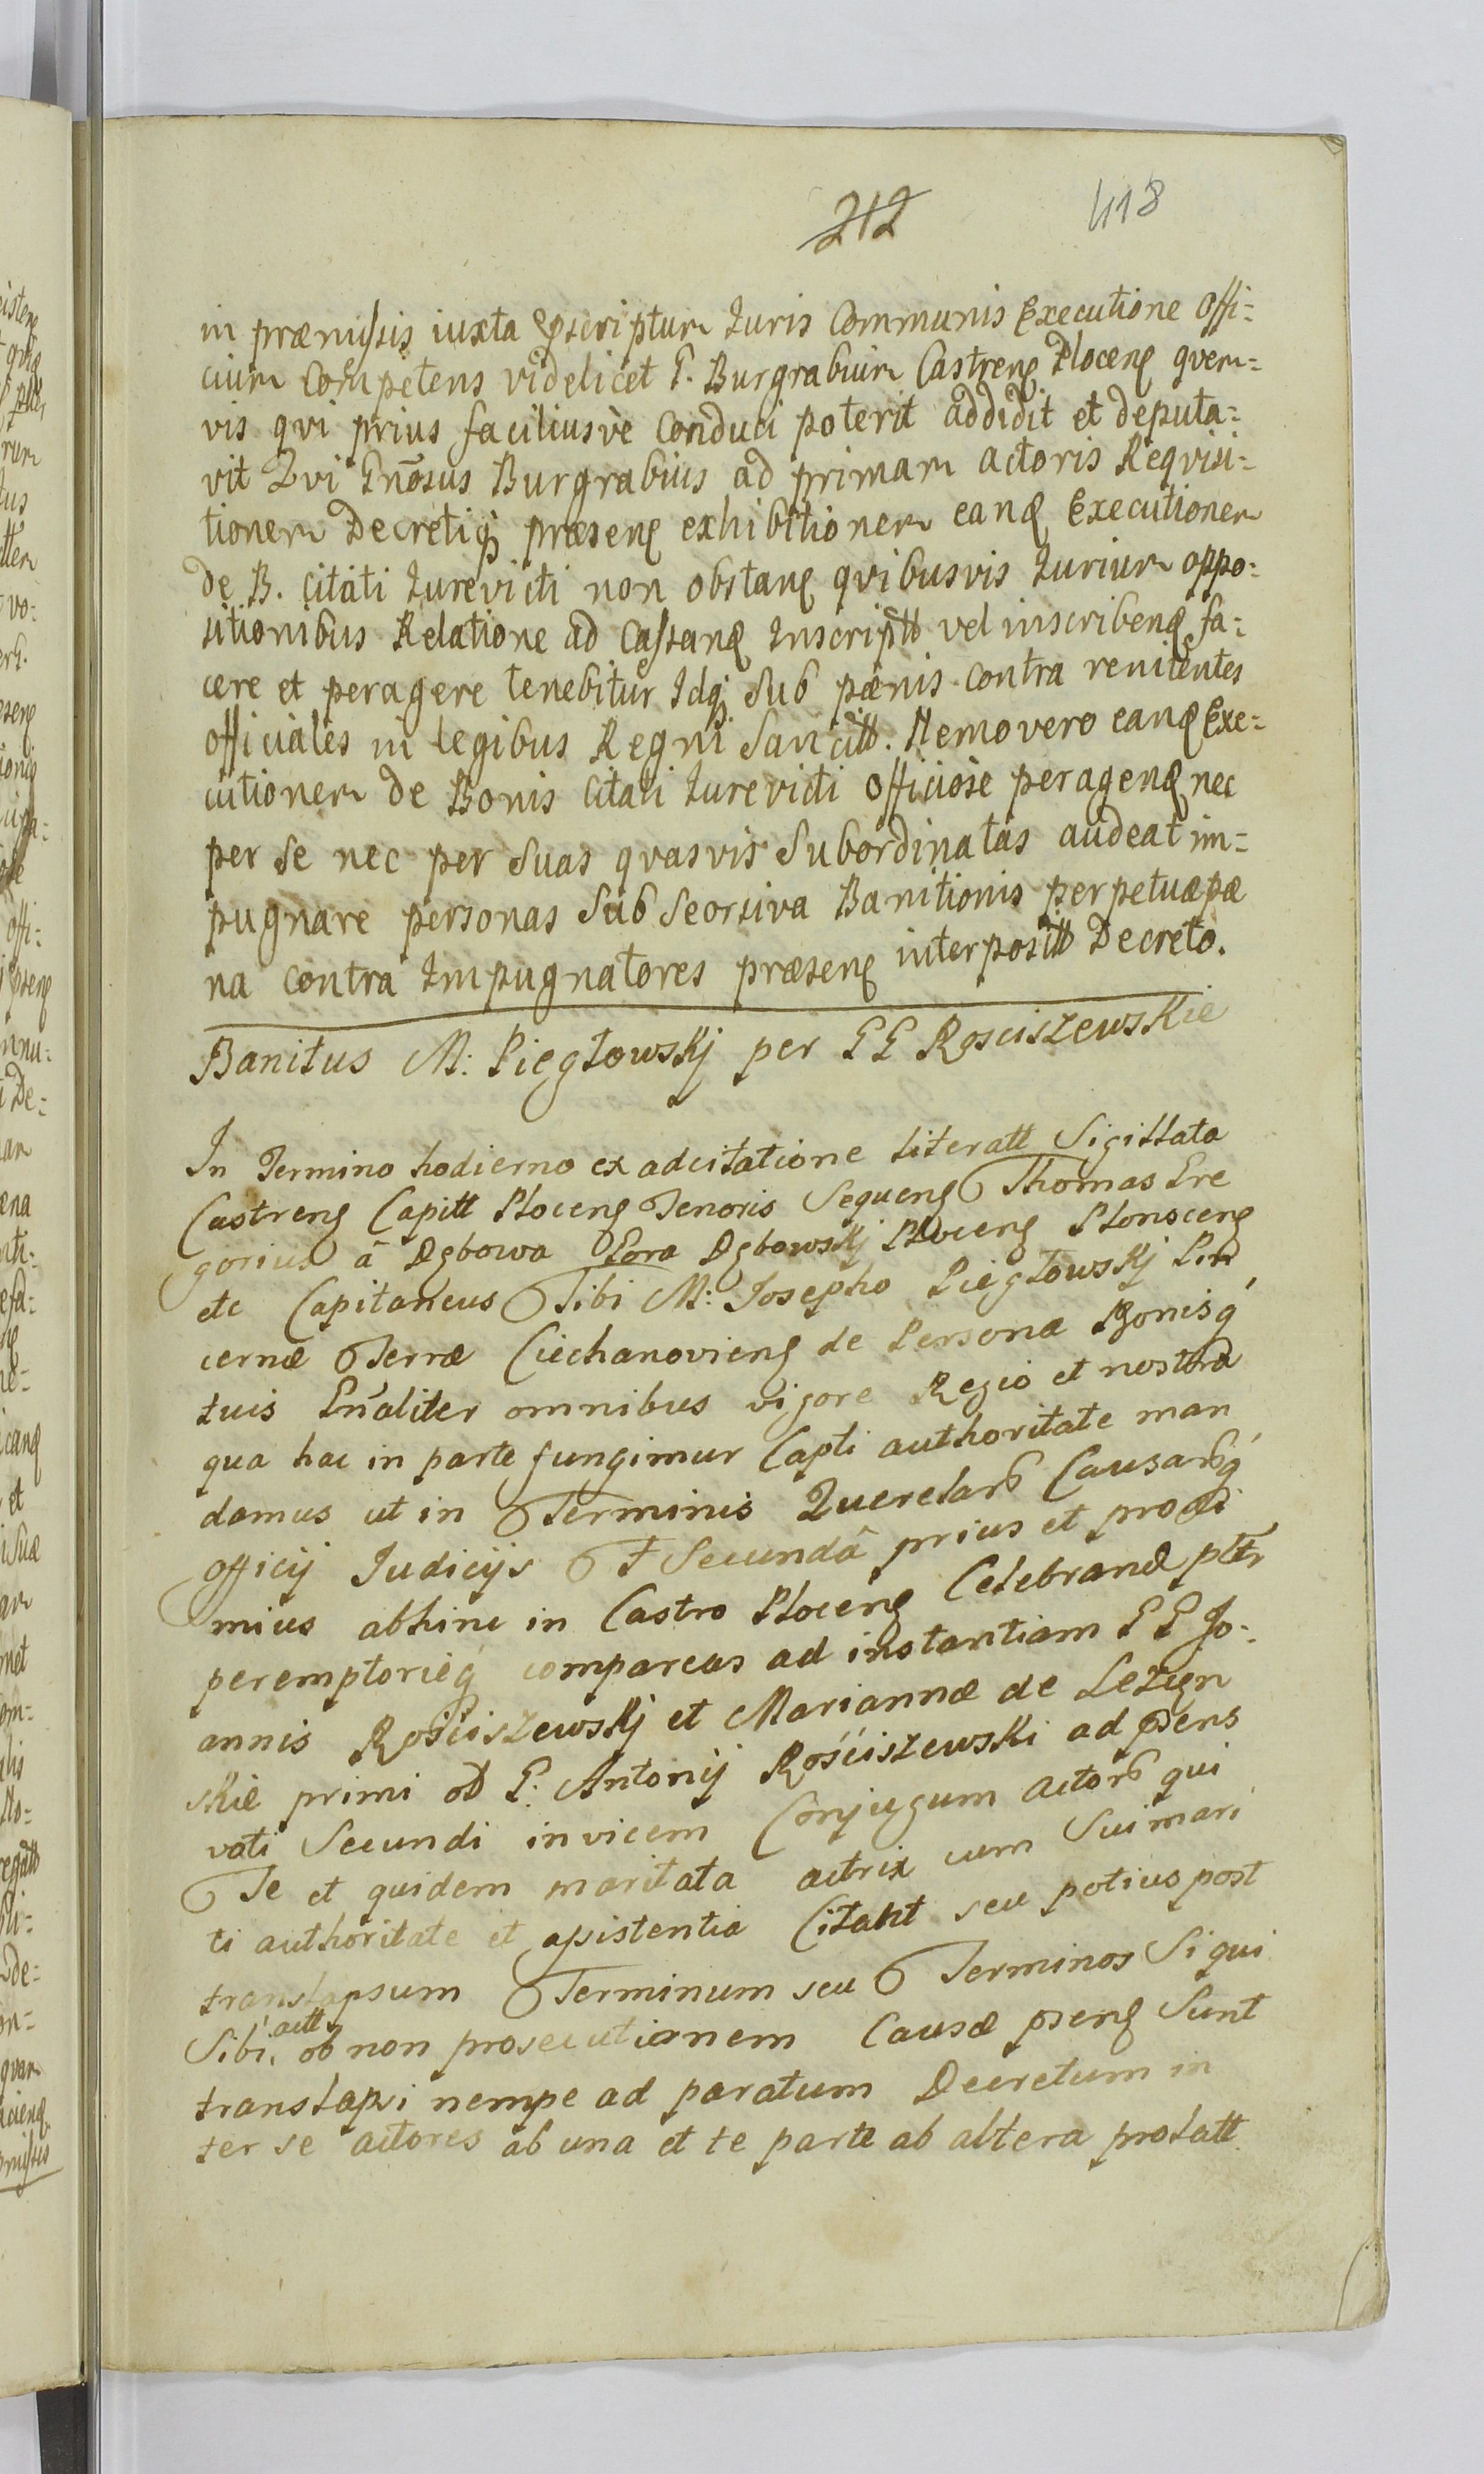 212 418
in præmissis iuxta pscriptum Iuris Communis Executione Offi=
cium Competens videlicet G. Burgrabium Castrens Plocens qvem=
vis qvi prius faciliusvè Conduci poterit addidit et deputa=
vit Qvi Gnõsus Burgrabius ad primam actoris Reqvisi=
tionem Decretiq; præsens exhibitionem eand Executionem
de B. citati Iurevicti non obstans qvibusvis Iurium oppo=
sitionibus Relatione ad Cassand Inscriptt vel inscribend fa=
cere et peragere tenebitur Idq; Sub pænis contra renitentes
officiales in legibus Regni Sancitt. Nemo vero eand Exe=
cutionem de Bonis Citati Iurevicti Officiose peragend nec
per se nec per Suas qvasvis Subordinatas audeat im=
pugnare personas Sub Seorsiva Banitionis perpetuæ pæ
na contra Impugnatores præsens interpositt Decreto.
Banitus M: Piegłowskj per GG Rosciszewskie
In Termino hodierno ex adcitatione literatt Sigillata
Castrens Capitt Plocens Tenoris Sequens Thomas Gre
gorius â Dębowa Gora Dębowskj Plocens Plonscens
etc Capitaneus Tibi M: Josepho Piegłowskj Pin
cernæ Terræ Ciechanoviens de Persona Bonisq́
tuis Gńaliter omnibus vigore Regio et nostra
qua hac in parte fungimur Capti authoritate man
damus ut in Terminis Querelarb Causarbq́
officij Judicijs F Secundâ prius et proxi
mius abhinc in Castro Plocens Celebrand pltr
peremptorieq́ compareas ad instantiam GG Jo-
annis Rościszewskj et Mariannæ de Leżen
skie primi ol G: Antonij Rościszewski ad psens
vati Secundi invicem Conjugum actorb qui
Te et quidem maritata actrix cum Sui mari
ti authoritate et assistentia Citant seu potius post
translapsum Terminum seu Terminos Si qui
Sibi actt ob non prosecutionem Causæ psens Sunt
translapsi nempe ad paratum Decretum in
ter se actores ab una et te parte ab altera prolatt